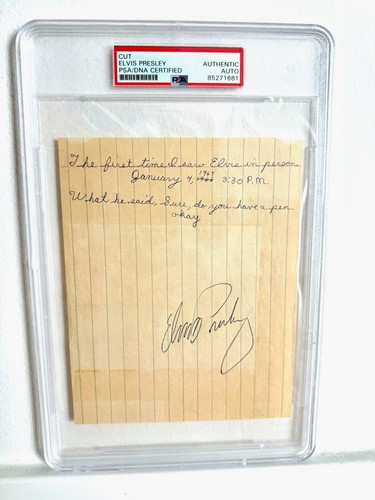 CUT
ELVIS PRESLEY
PSA/DNA CERTIFIED
AUTHENTIC
AUTO
85271681
PSA
The first time I saw Elvis in person
1967
January 4, 1966 3:30 P.M.
What he said, Sure, do you have a pen
okay
Elvis Presley